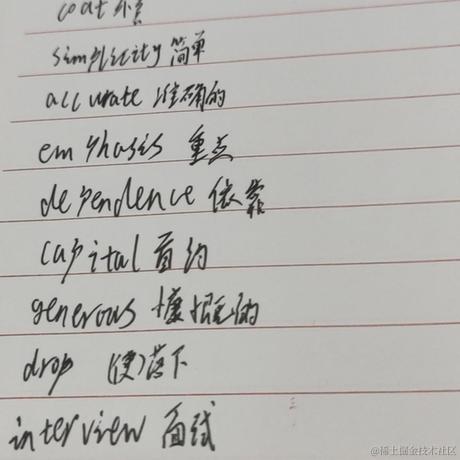 coat
simplicity 简单
accurate 准确的
emphasis 重点
dependence 依靠
capital 首
generous 慷慨的
drop (使)落下
interview 面试
@稀土掘金技术社区